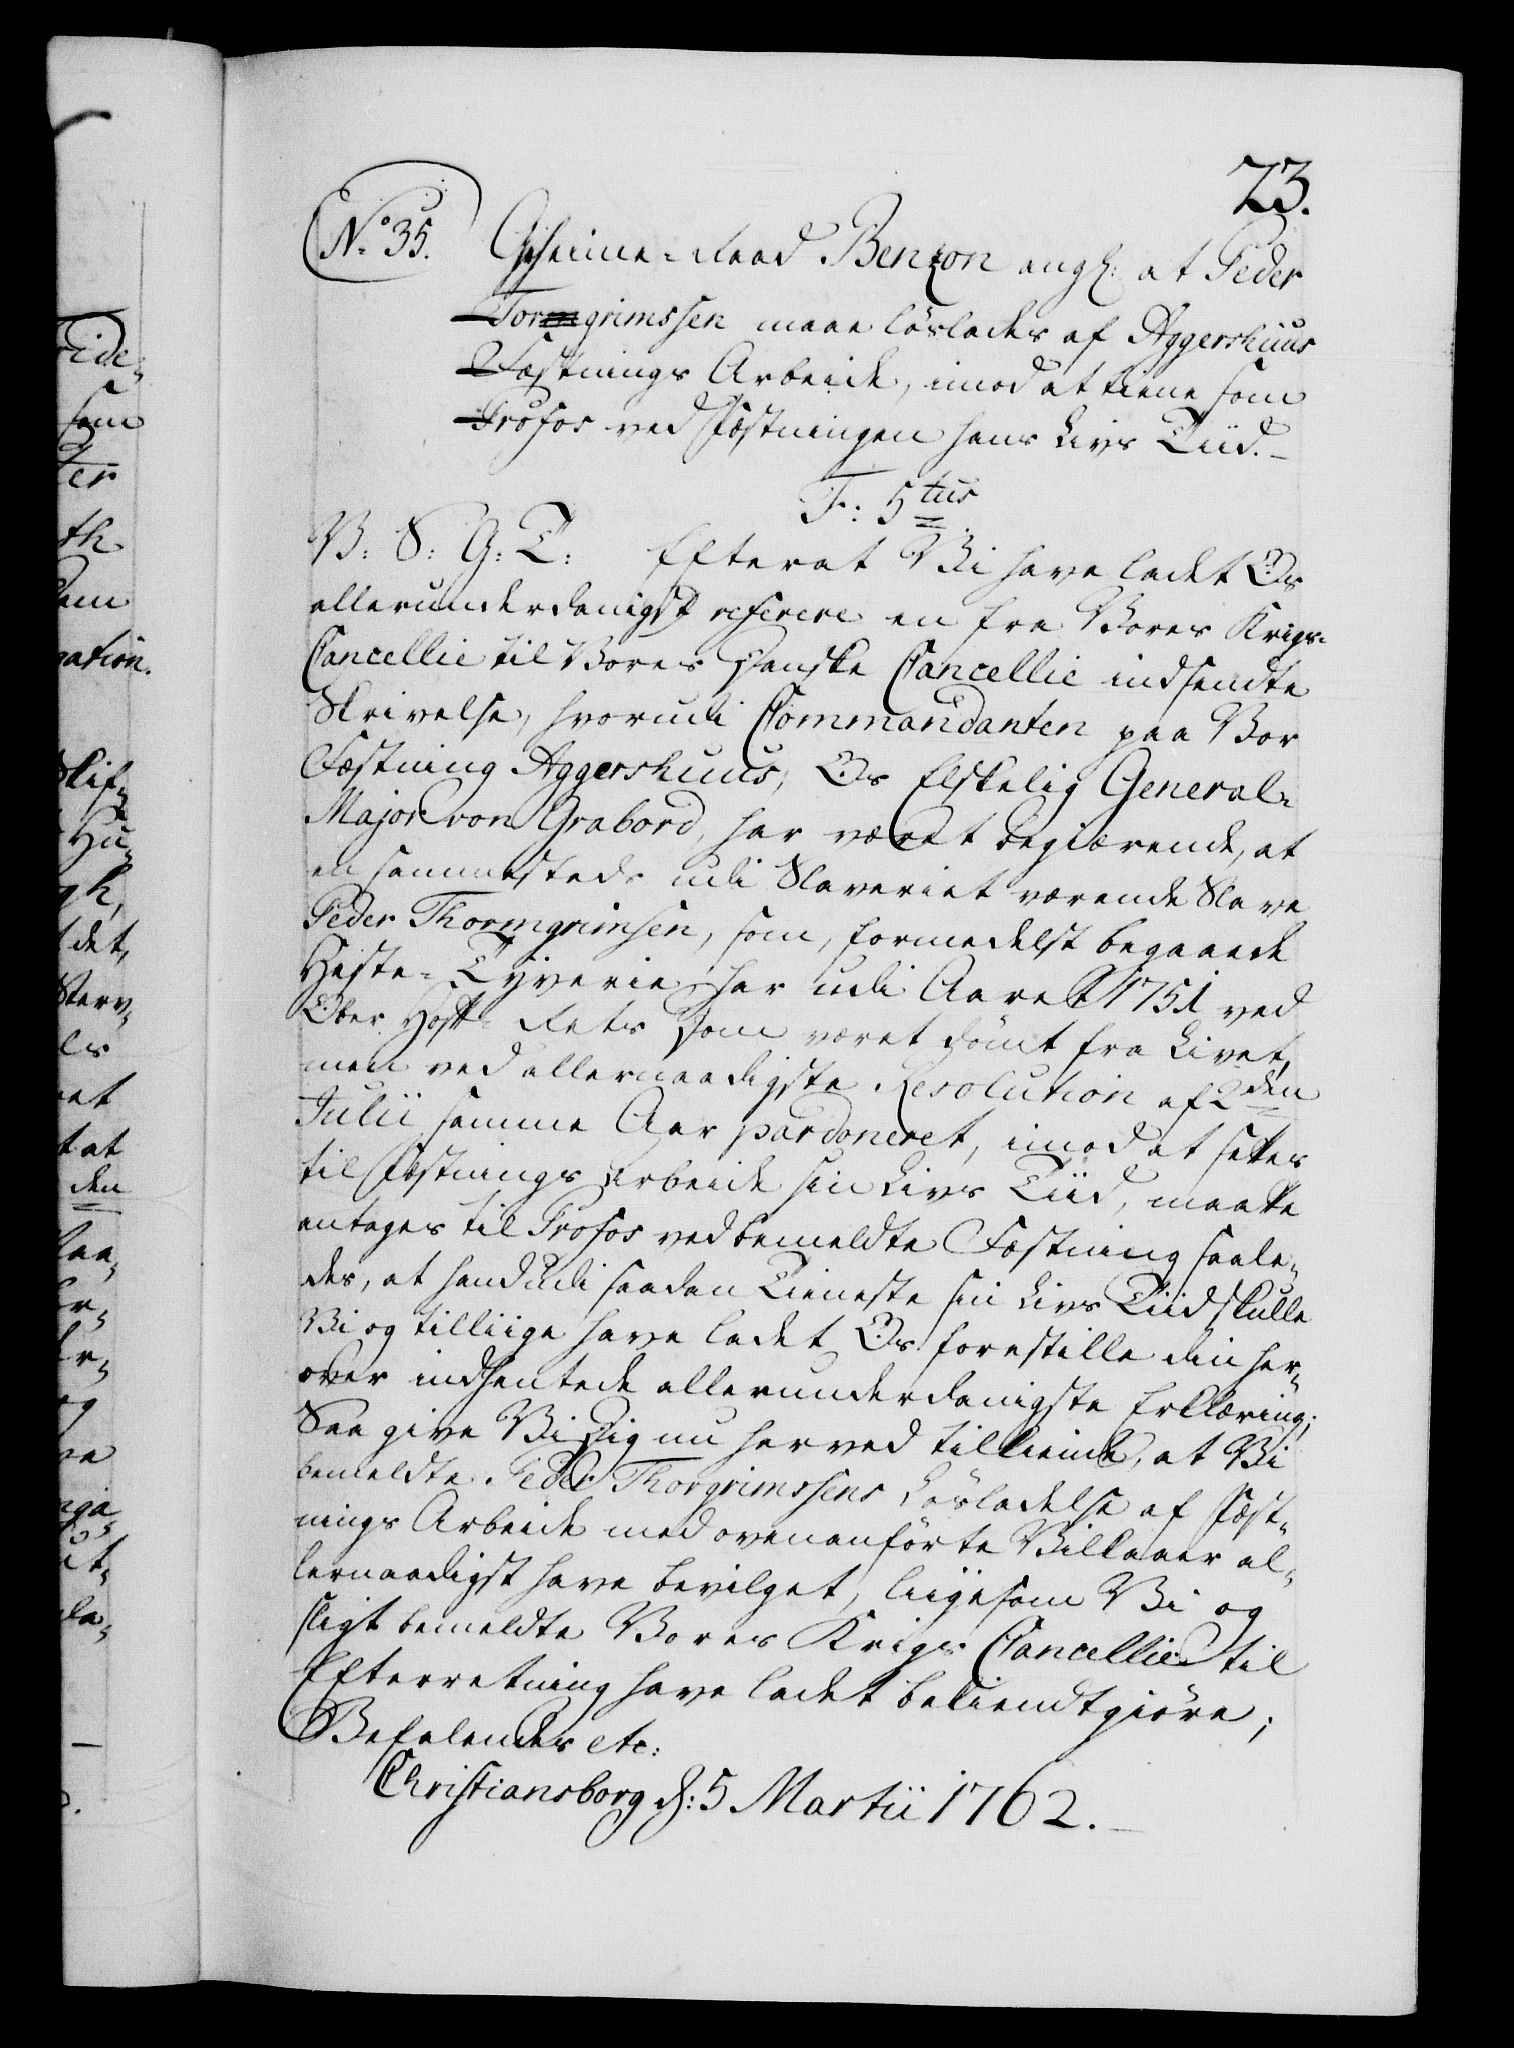 23.
No 35. Geheime-Raad Benzon angl: at Peder
Torgrimssen maae löslades af Aggershuus
Fæstnings Arbeide, imod at tiene som
Profos ved Fæstningen hans Livs Tiid.-
F: 5tus
V: S: G: T: Efterat Vi have ladet Os
allerunderdanigst referere en fra Vores Krigs-
Cancellie til Vores Danske Cancellie indsendte
Skrivelse, hvorudi Commandanten paa Vor
Fæstning Aggershuus, Os Elskelig General-
Major von Grabord, har været begiærende, at
en sammesteds udi Slaveriet værende Slave
Peder Thormgrimsen, som, formedelst begaaede
Heste-Tyverie har udi Aaret 1751 ved
Ober Hoff-Rets Dom været dömt fra Livet,
men ved allernaadigste Resolution af 2den
Julii samme Aar pardoneret, imod at settes
til Fæstnings Arbeide sin Livs Tiid, maatte
antages til Profos ved bemeldte Fæstning saale-
des, at hand udi saadan Tieneste sin Livs Tiid skulle
Vi og tilliige have ladet Os forestille din her-
over indhentede allerunderdanigste Erklæring;
Saa give Vi Dig nu herved tilkiende, at Vi
bemeldte Peder Thorgrimssens Lösladelse af Fæst-
nings Arbeide med ovenanförte Vilkaaer al-
lernaadigst have bevilget, liigesom Vi og
sligt bemeldte Vores Krigs Cancellie til
Efterretning have ladet bekiendtgiöre;
Befalendes etc:
Christiansborg d: 5 Martii 1762.-